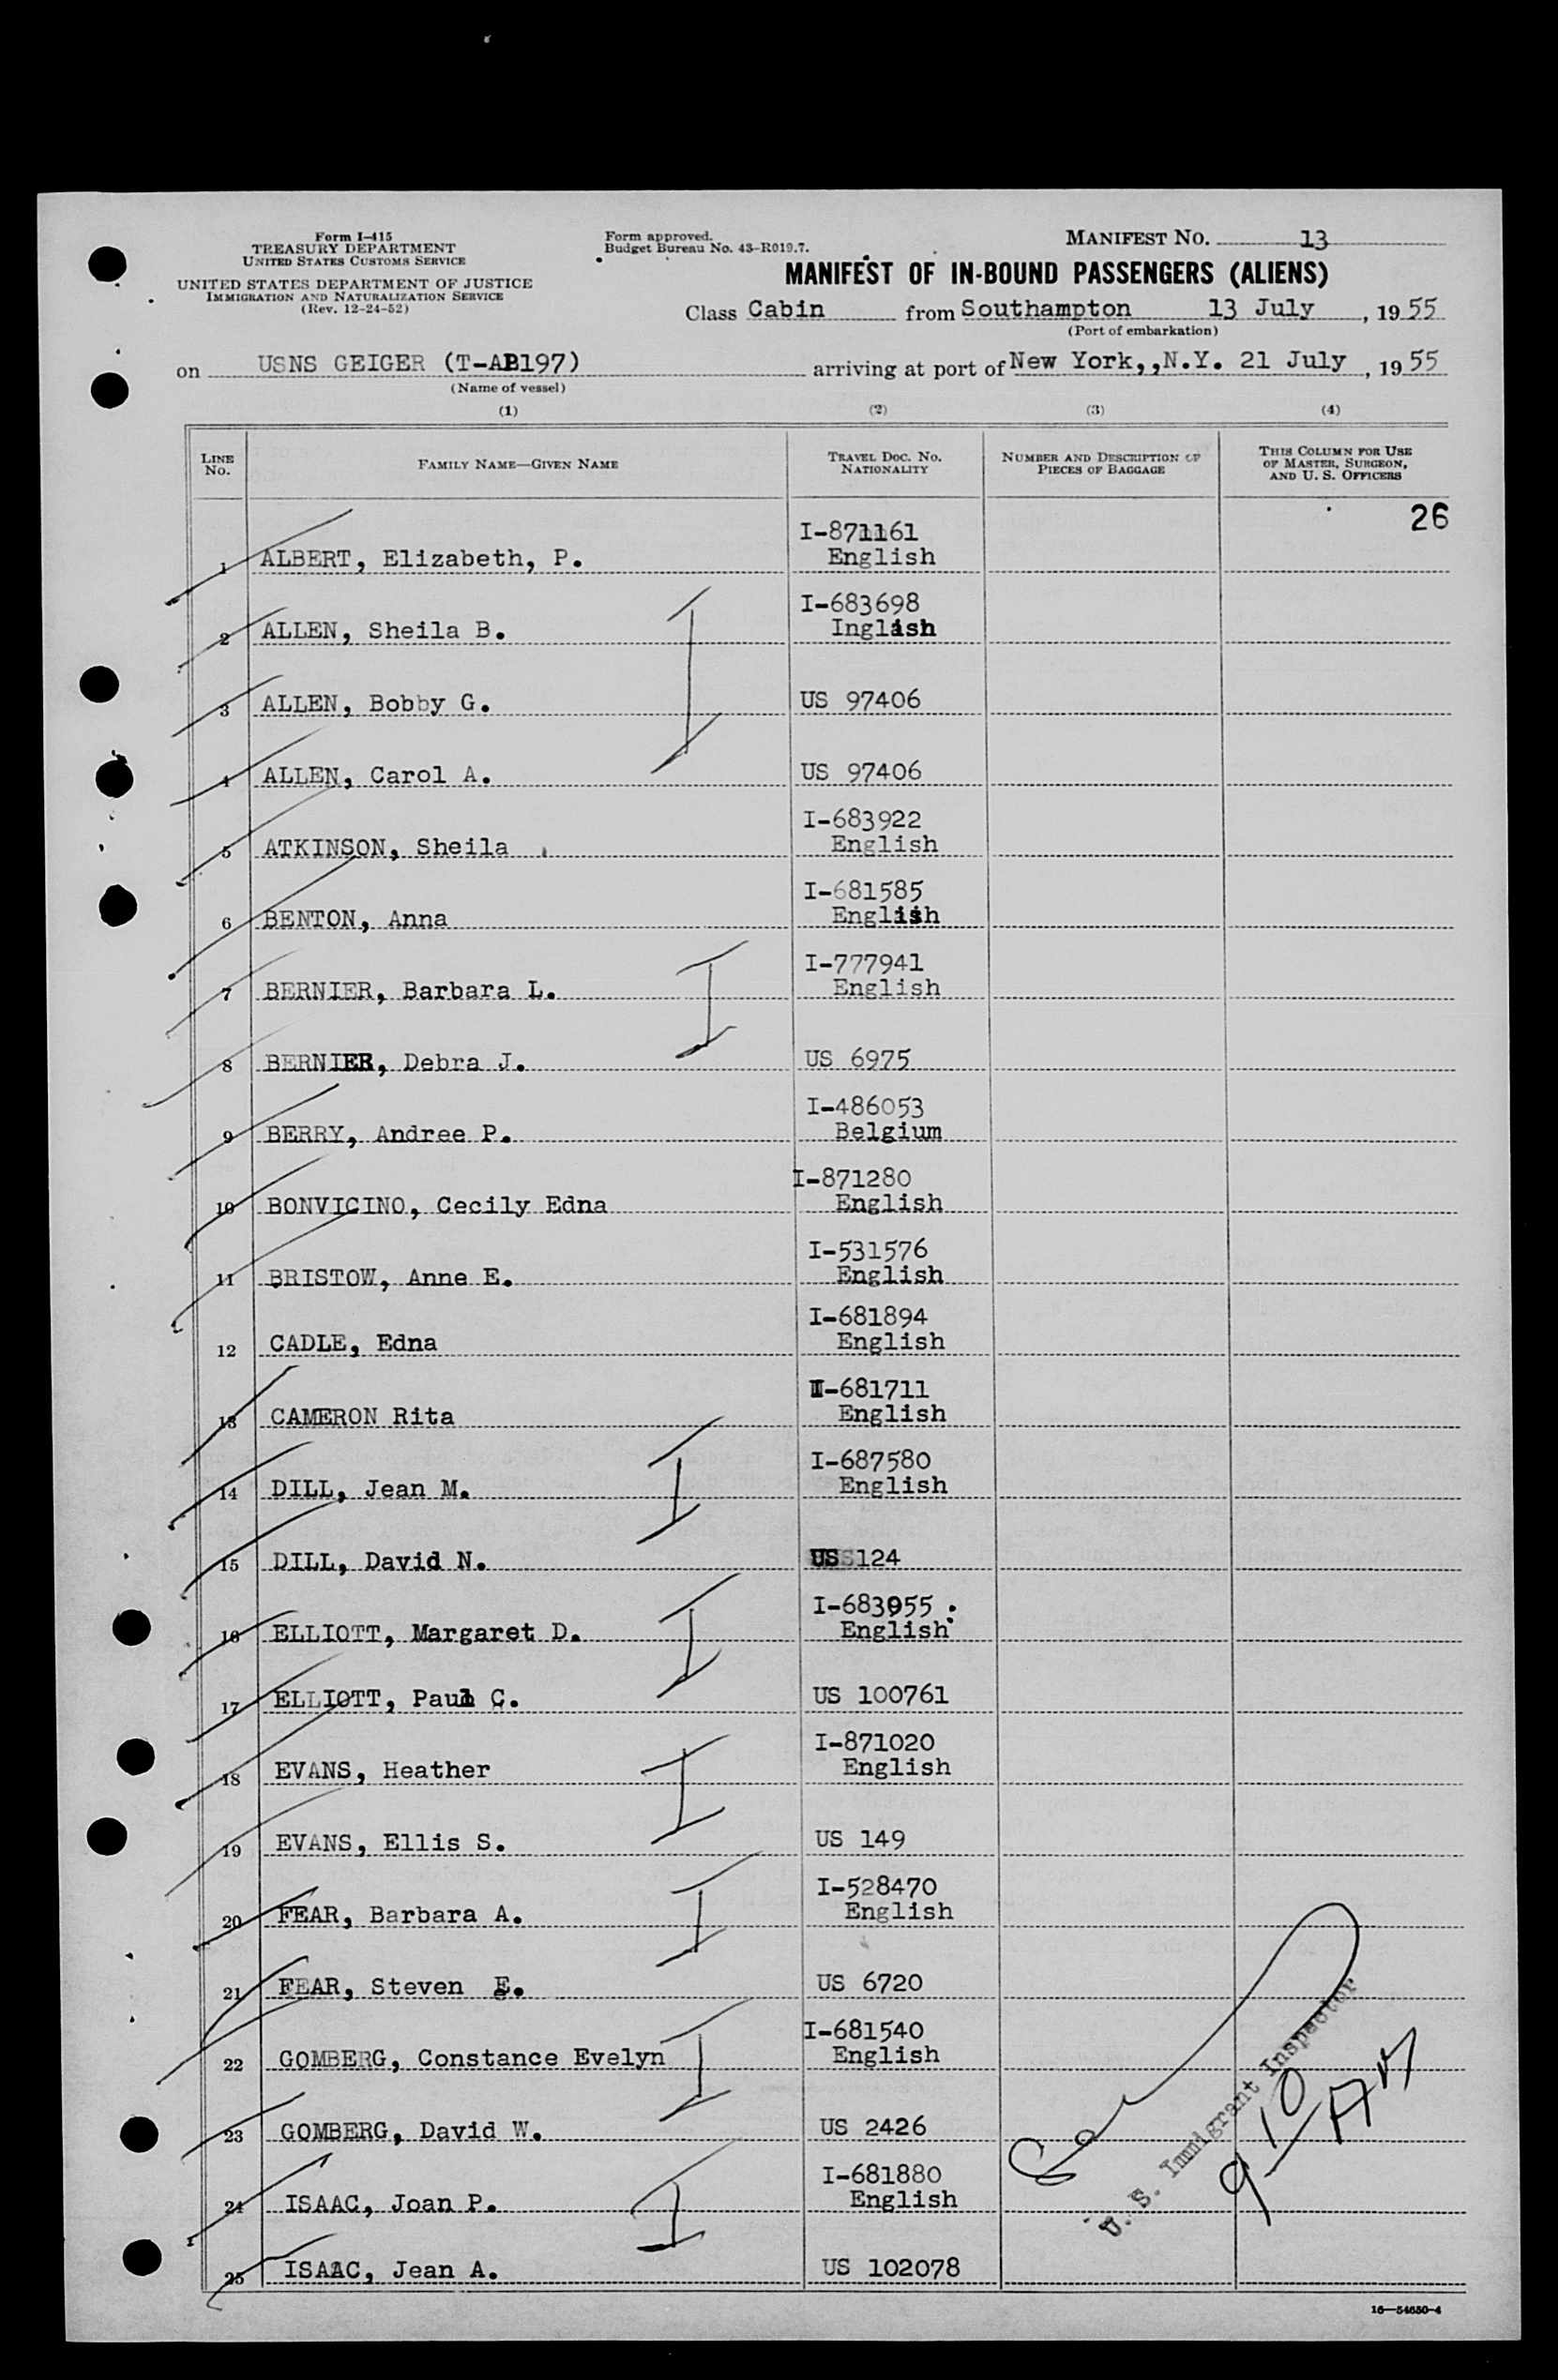 Form I-415
TREASURY DEPARTMENT
UNITED STATES CUSTOMS SERVICE
UNITED STATES DEPARTMENT OF JUSTICE
IMMIGRATION AND NATURALIZATION SERVICE
(Rev. 12-24-52)
Form approved.
Budget Bureau No. 43-R019.7.
MANIFEST NO. 13
MANIFEST OF IN-BOUND PASSENGERS (ALIENS)
Class Cabin from Southampton 13 July, 1955
(Port of embarkation)
on USNS GEIGER (T-AB197) arriving at port of New York,,N.Y. 21 July, 1955
(Name of vessel)
(1) (2) (3) (4)
LINE NO. FAMILY NAME—GIVEN NAME TRAVEL DOC. NO. NATIONALITY NUMBER AND DESCRIPTION OF PIECES OF BAGGAGE THIS COLUMN FOR USE OF MASTER, SURGEON, AND U. S. OFFICERS
26
I-871161
1 ALBERT, Elizabeth, P. English
I-683698
2 ALLEN, Sheila B. Inglish
3 ALLEN, Bobby G. US 97406
4 ALLEN, Carol A. US 97406
I-683922
5 ATKINSON, Sheila English
I-681585
6 BENTON, Anna English
I-777941
7 BERNIER, Barbara L. English
8 BERNIER, Debra J. US 6975
I-486053
9 BERRY, Andree P. Belgium
I-871280
10 BONVICINO, Cecily Edna English
I-531576
11 BRISTOW, Anne E. English
I-681894
12 CADLE, Edna English
I-681711
13 CAMERON Rita English
I-687580
14 DILL, Jean M. English
15 DILL, David N. US 124
I-683955
16 ELLIOTT, Margaret D. English
17 ELLIOTT, Paul C. US 100761
I-871020
18 EVANS, Heather English
19 EVANS, Ellis S. US 149
I-528470
20 FEAR, Barbara A. English
21 FEAR, Steven E. US 6720
I-681540
22 GOMBERG, Constance Evelyn English
23 GOMBERG, David W. US 2426
I-681880
24 ISAAC, Joan P. English
25 ISAAC, Jean A. US 102078
U. S. Immigrant Inspector
9 10 AM
16—54650-4